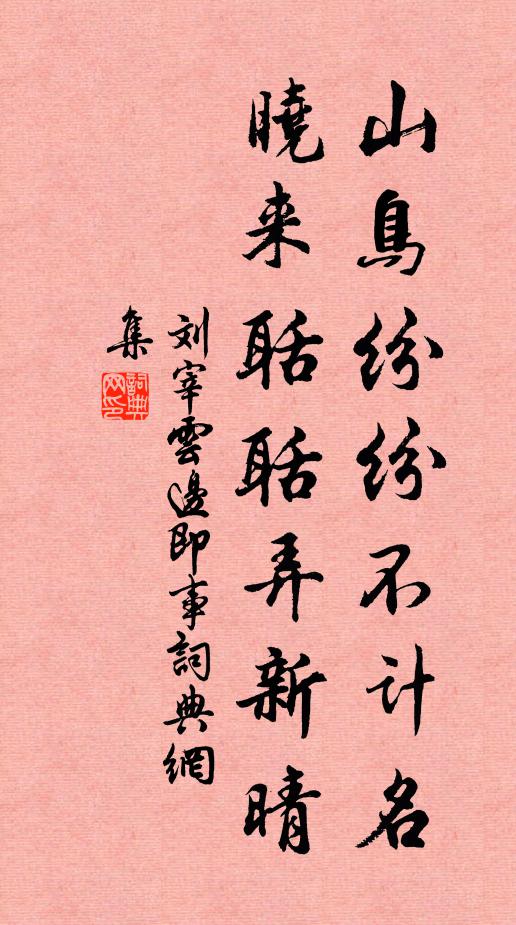 山鳥纷纷不计名
曉来聒聒弄新晴
刘宰雲邊即事詞典網
集
詞典网印